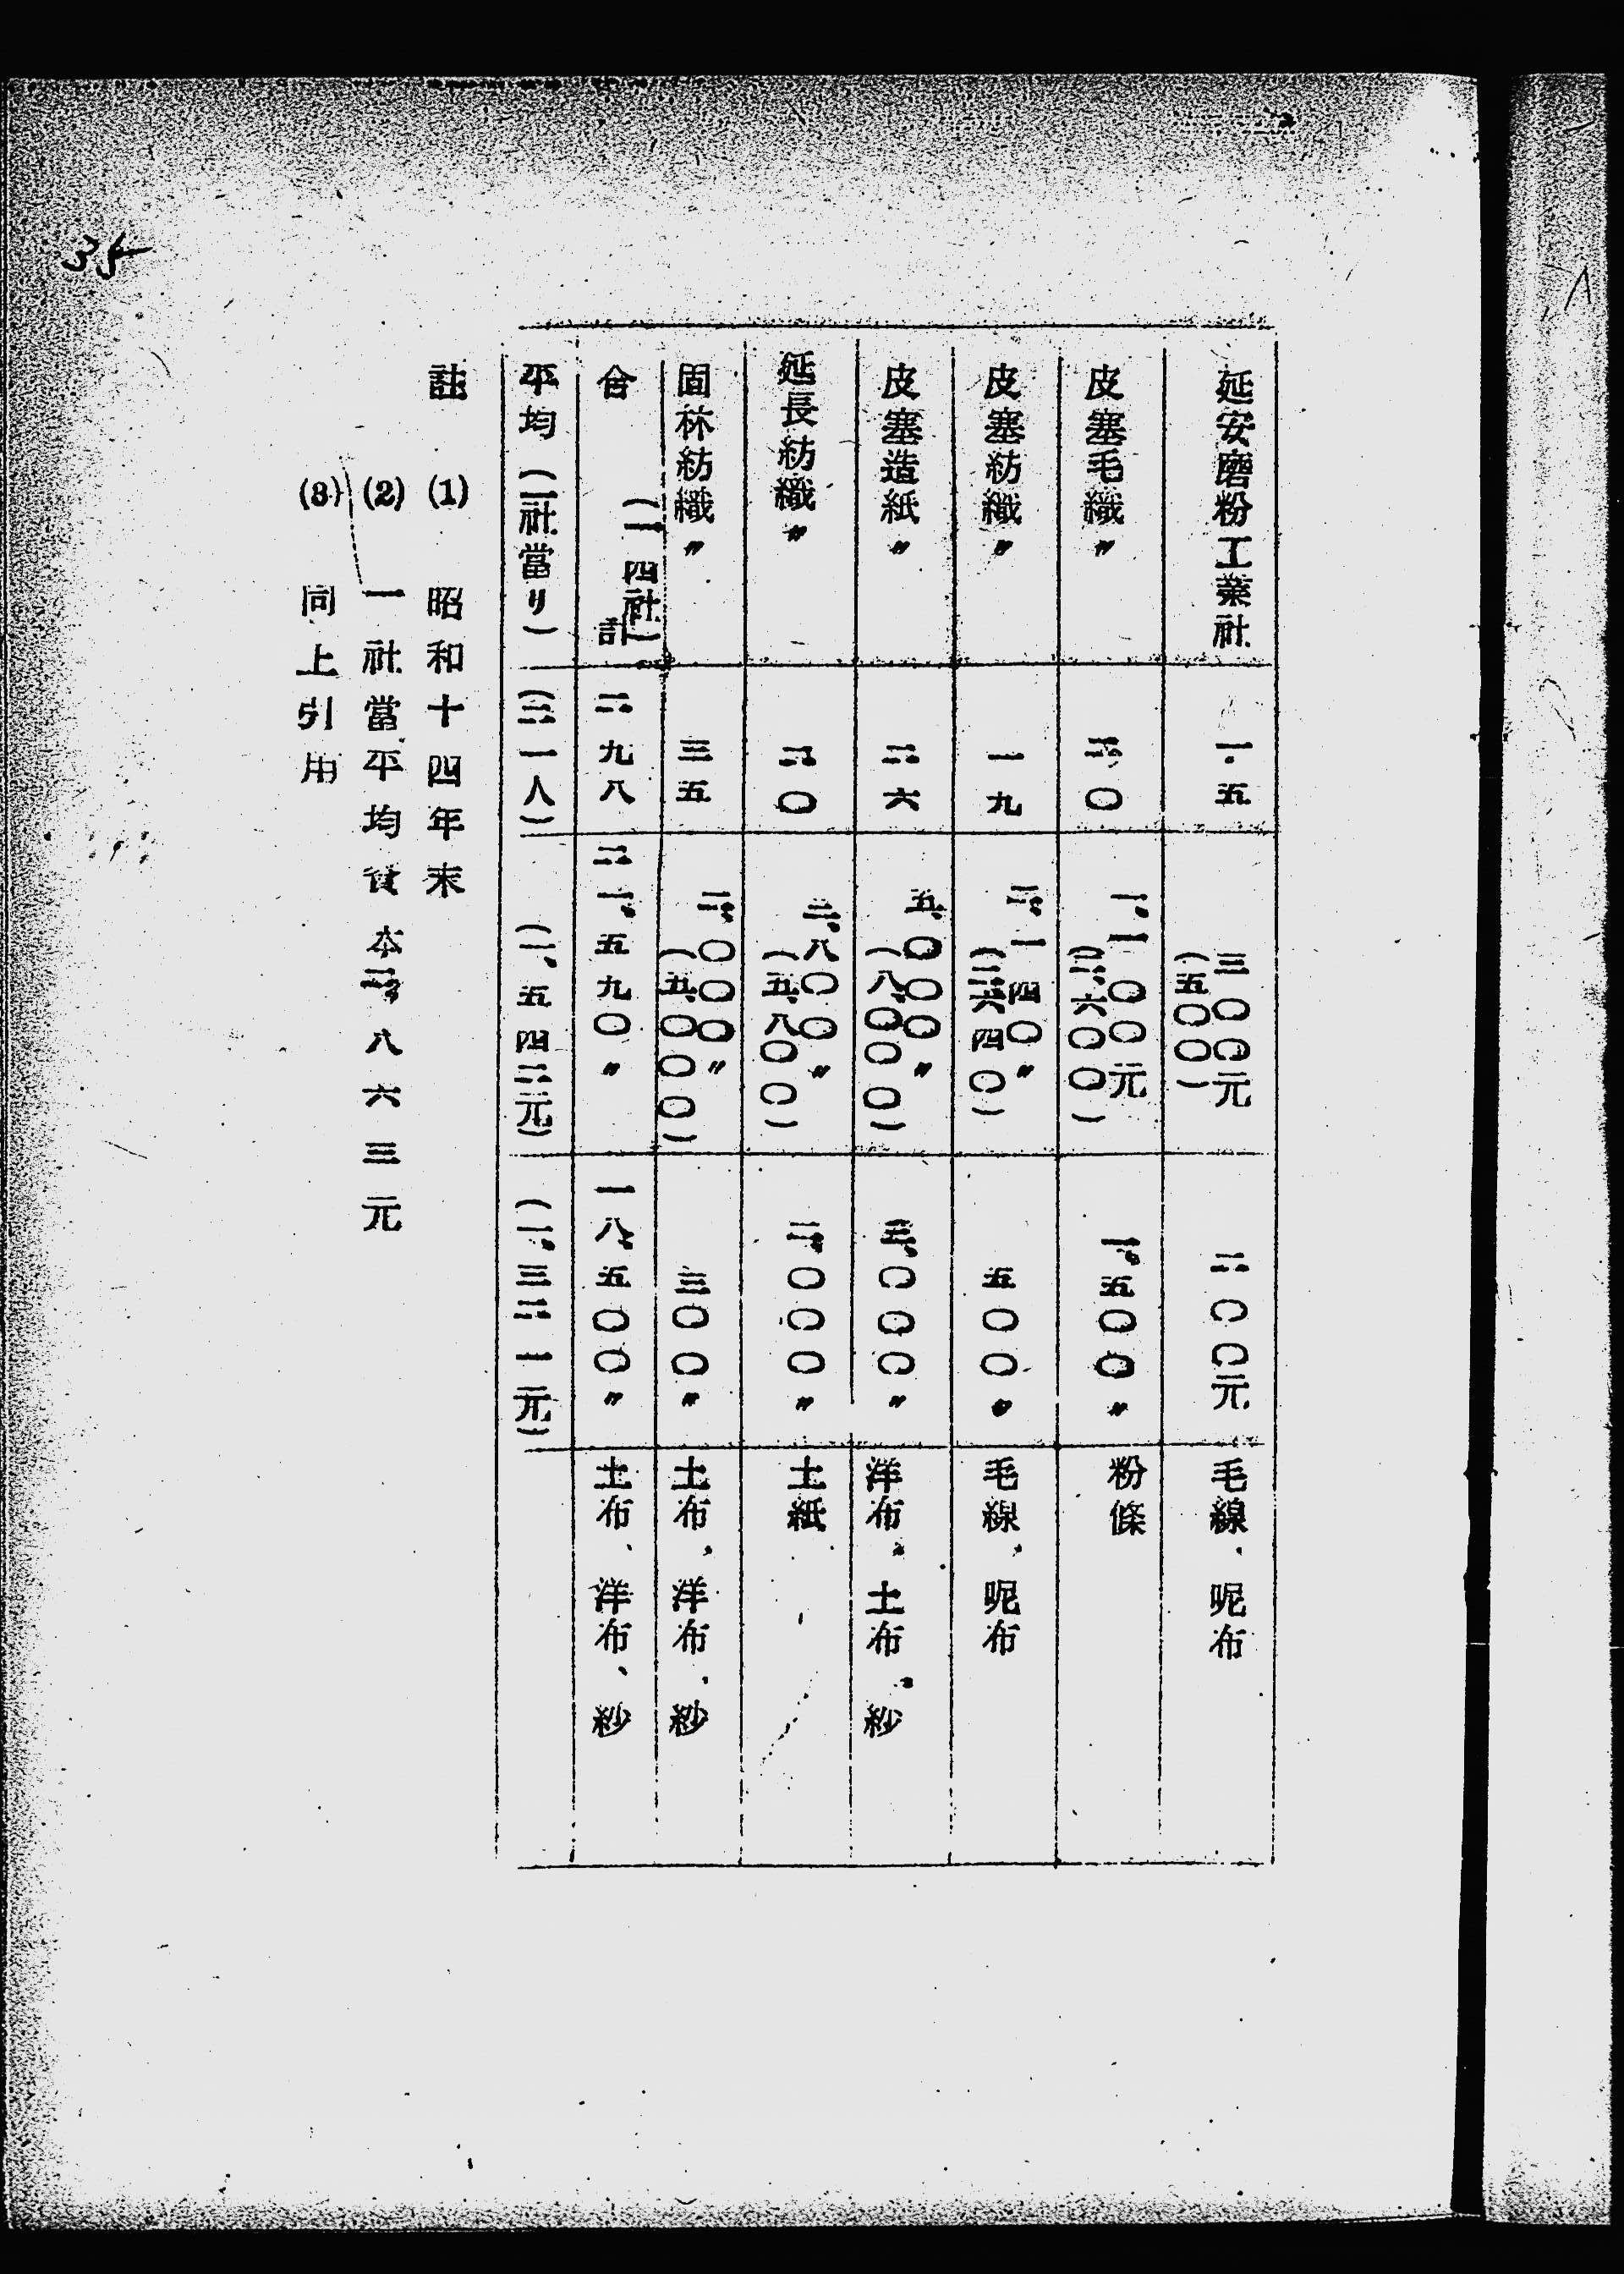 延安磨粉工業社 一五 三〇〇元 (五〇〇) 二〇〇元 毛線、呢布
皮塞毛織〃 二〇 一、一〇〇元 (二、六〇〇) 一、五〇〇〃 粉條
皮塞紡織〃 一九 二、一四〇〃 (二、六四〇) 五〇〇〃 毛線、呢布
皮塞造紙〃 二六 五、〇〇〇〃 (八、〇〇〇) 三、〇〇〇〃 洋布、土布、紗
延長紡織〃 二〇 三、八〇〇〃 (五、八〇〇) 二、〇〇〇〃 土紙
固林紡織〃 三五 二、〇〇〇〃 (五、〇〇〇) 三〇〇〃 土布、洋布、紗
合計 (一四社) 二九八 二一、五九〇〃 一八、五〇〇〃 土布、洋布、紗
平均(一社當リ) (二一人) (一、五四二元) (一、三二一元)
註 (1) 昭和十四年末
(2) 一社當平均資本二、八六三元
(3) 同上引用
35